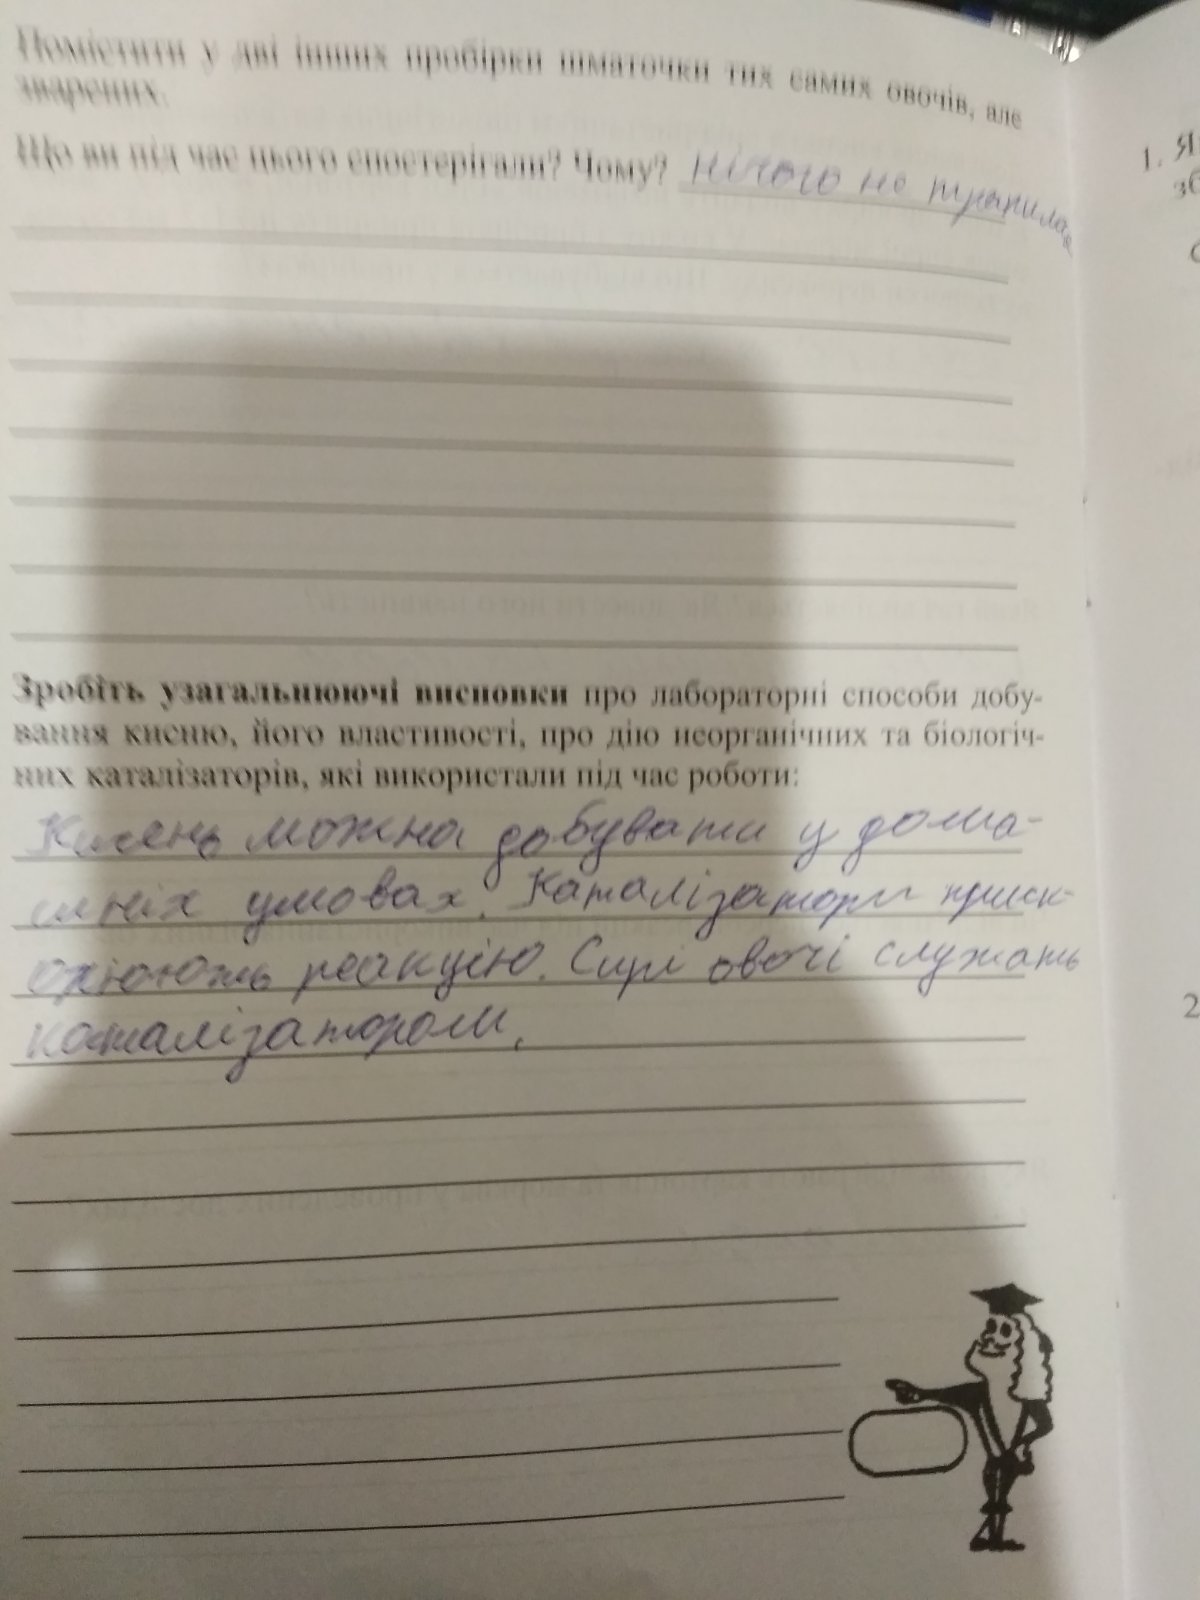 Помістити у дві інших пробірки шматочки тих самих овочів, але
зварених.
Що ви під час цього спостерігали? Чому? нічого не трапилася
Зробіть узагальнюючі висновки про лабораторні способи добу-
вання кисню, його властивості, про дію неорганічних та біологіч-
них каталізаторів, які використали під час роботи:
Кисень можна добувати у дома-
шніх умовах. Каталізатори приск-
орюють реакцію. Сирі овочі служать
каталізатором.
1. Я
зб
2